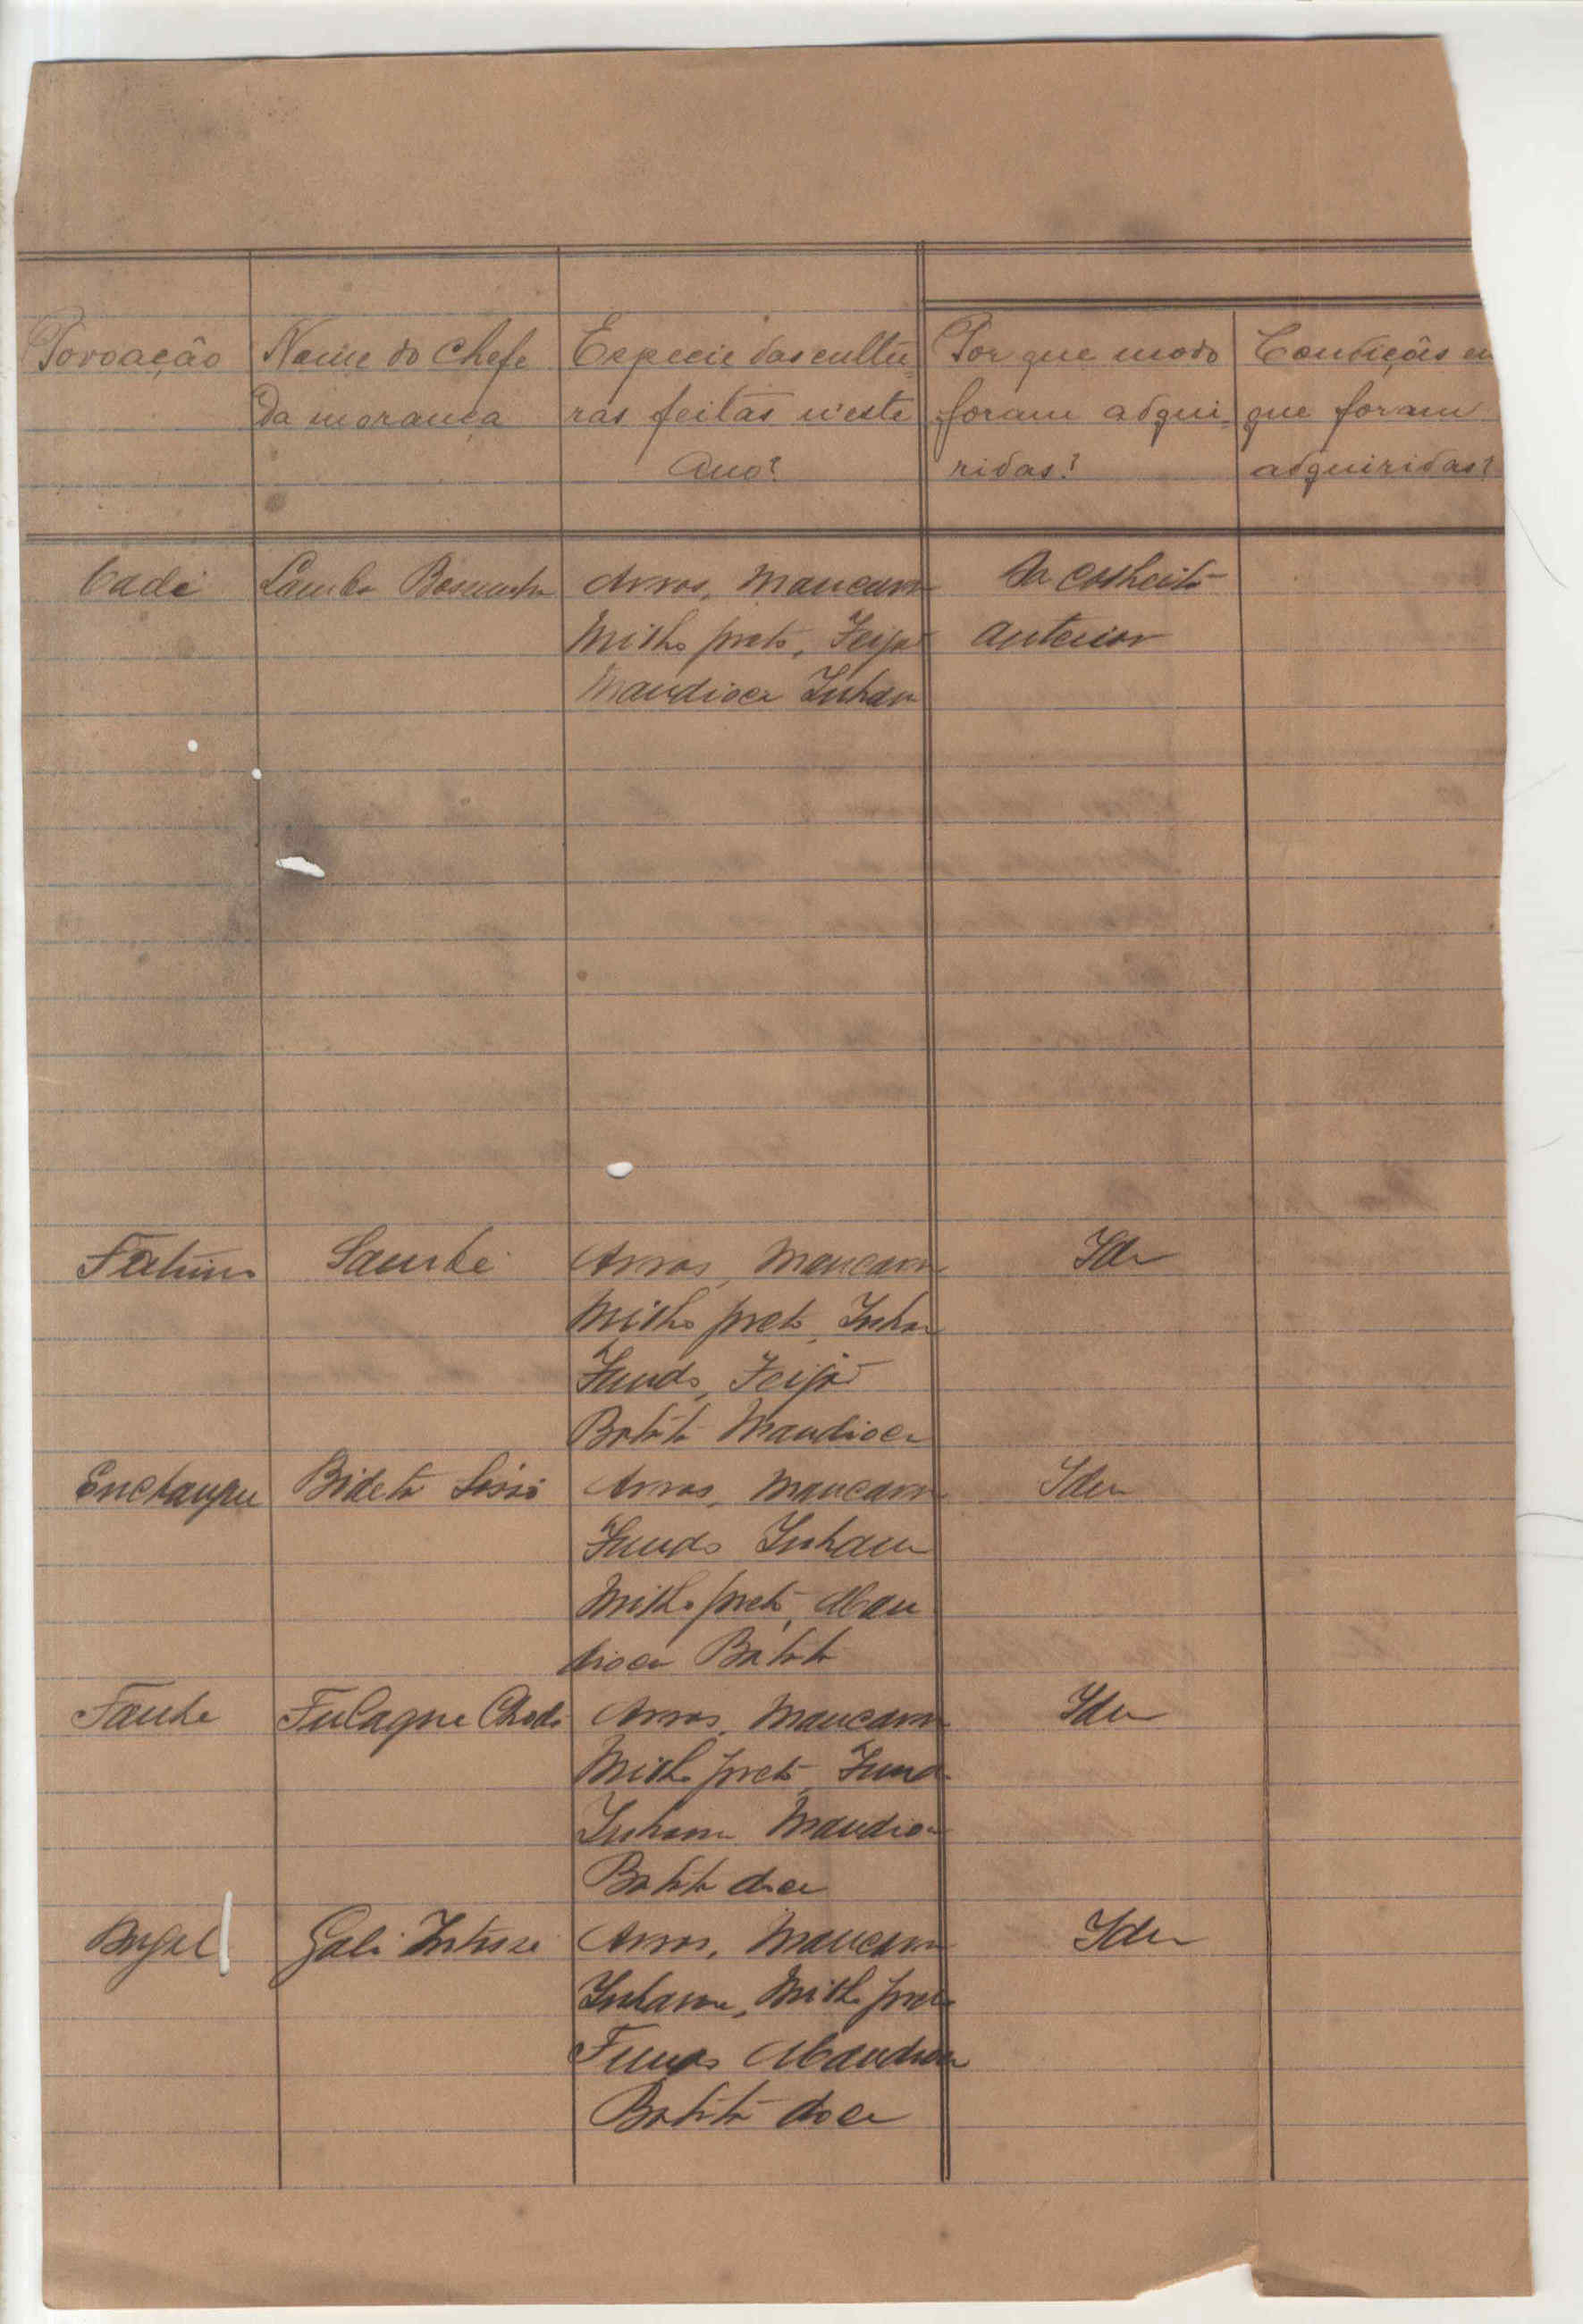 Povoação
Nome do Chefe
da morança
Especie das cultu-
ras feitas n'este
Ano?
Por que modo
foram adqui-
ridas?
Condições em
que foram
adquiridas?
Cadé
Arroz, Mancarra
Milho preto, Feijão
Mandioca Inham
Da colheita
anterior
Sambé
Arroz, Mancarra
Milho preto, Inham
Fundo, Feijão
Batata Mandioca
Idem
Arroz, Mancarra
Fundo Inhame
Milho preto, Man
dioca Batata
Idem
Fulagne
Arroz, Mancarra
Milho preto, Fundo
Inhame Mandioca
Batata doce
Idem
Arroz, Mancarra
Inhame, Milho preto
Fundo Mandioca
Batata doce
Idem